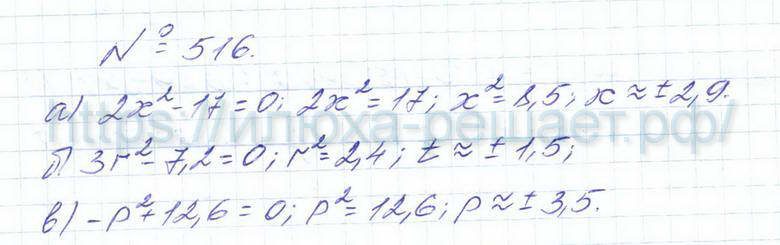 № 516.
а) 2x² - 17 = 0; 2x² = 17; x² = 8,5; x ≈ ± 2,9.
https://илюха-решает.рф/
б) 3r² - 7,2 = 0; r² = 2,4; t ≈ ± 1,5;
в) -p² + 12,6 = 0; p² = 12,6; p ≈ ± 3,5.